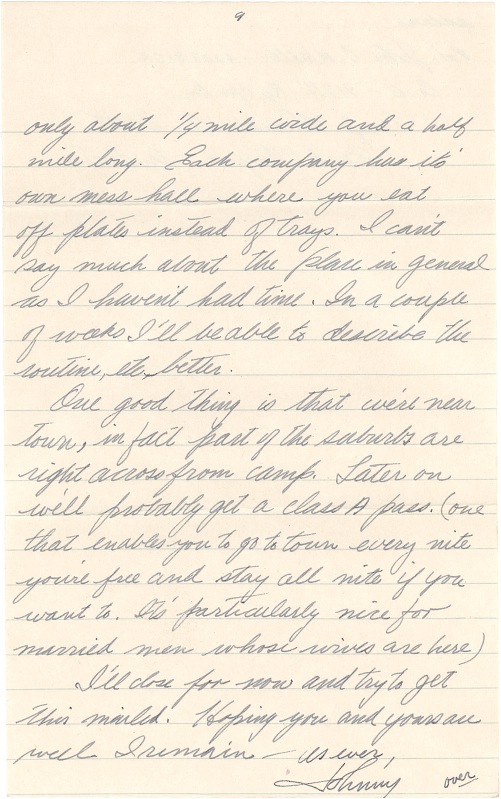 9
only about 1/4 mile wide and a half
mile long. Each company has it's
own mess hall where you eat
off plates instead of trays. I can't
say much about the place in general
as I haven't had time. In a couple
of weeks I'll be able to describe the
routine, etc. better.
One good thing is that we're near
town, in fact part of the suburbs are
right across from camp. Later on
we'll probably get a class A pass. (one
that enables you to go to town every nite
you're free and stay all nite if you
want to. It's particularly nice for
married men whose wives are here)
I'll close for now and try to get
this mailed. Hoping you and yours are
well I remain – As ever,
Johnny
over